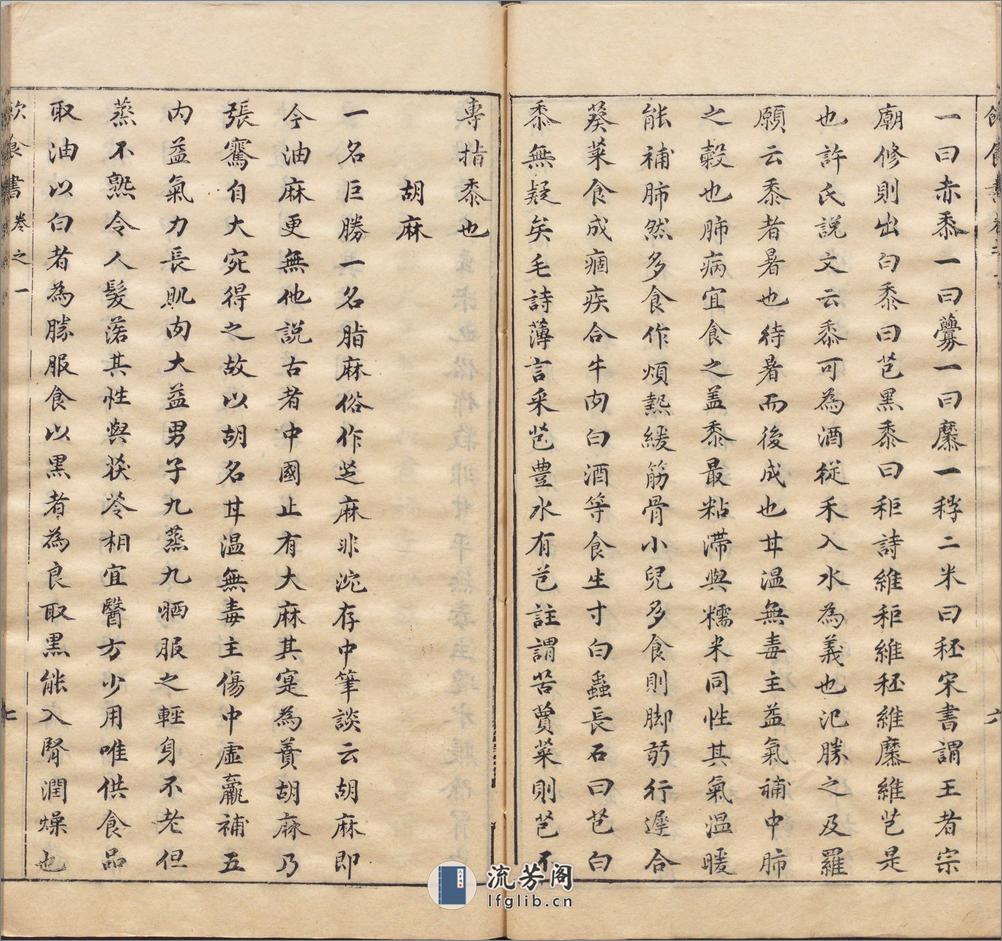 一曰赤黍一曰虋一曰穈一稃二米曰秠宋書謂王者宗
廟修則出白黍曰芑黑黍曰秬詩維秬維秠維穈維芑是
也許氏說文云黍可為酒從禾入水為義也氾勝之及羅
願云黍者暑也待暑而後成也甘溫無毒主益氣補中肺
之穀也肺病宜食之盖黍最粘滯與糯米同性其氣溫暖
能補肺然多食作煩熱緩筋骨小兒多食則脚弱行遲合
葵菜食成痼疾合牛肉白酒等食生寸白蟲長石曰芑白
黍無疑矣毛詩薄言采芑豊水有芑註謂苦蕒菜則芑不
專指黍也
胡麻
一名巨勝一名脂麻俗作芝麻非沈存中筆談云胡麻即
今油麻更無他說古者中國止有大麻其寔為蕡胡麻乃
張騫自大宛得之故以胡名甘溫無毒主傷中虛羸補五
內益氣力長肌肉大益男子九蒸九晒服之輕身不老但
蒸不熟令人髮落其性與茯苓相宜醫方少用唯供食品
取油以白者為勝服食以黑者為良取黑能入腎潤燥也
飲食書 卷之一
七
六
流芳阁
lfglib.cn